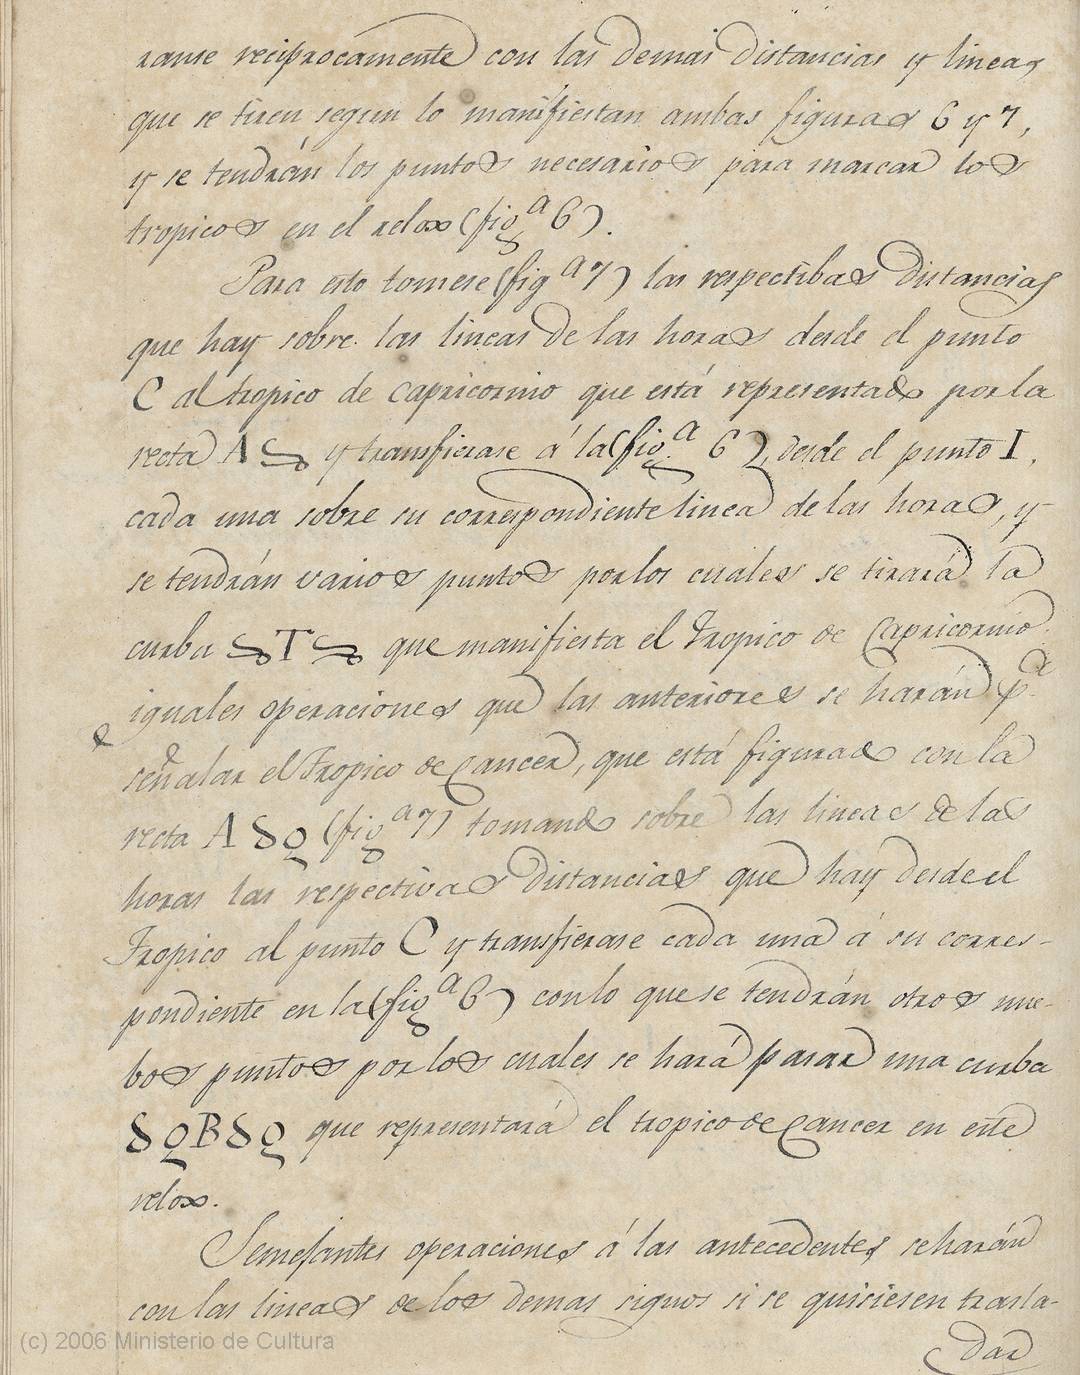 ranse reciprocamente con las demas distancias y lineas
que se tiren segun lo manifiestan ambas figuras 6 y 7,
y se tendrán los puntos necesarios para marcar los
tropicos en el relox (figª 6).
Para esto tomese (figª 7) las respectibas distancias
que hay sobre las lineas de las horas desde el punto
C al tropico de capricornio que está representado por la
recta A ♑ y transfierase á la (figª 6), desde el punto I,
cada una sobre su correspondiente linea de las horas, y
se tendrán varios puntos por los cuales se tirará la
curba ♑T♑ que manifiesta el Tropico de Capricornio.
iguales operaciones que las anteriores se harán pª
señalar el Tropico de Cancer, que está figurado con la
recta A ♋ (figª 7) tomando sobre las lineas de las
horas las respectivas distancias que hay desde el
Tropico al punto C y transfierase cada una á su corres-
pondiente en la (figª 6) con lo que se tendrán otros nue-
bos puntos por los cuales se hará pasar una curba
♋B♋ que representará el tropico de Cancer en este
relox.
Semejantes operaciones á las antecedentes se harán
con las lineas de los demas signos si se quisiesen trasla-
dar
(c) 2006 Ministerio de Cultura